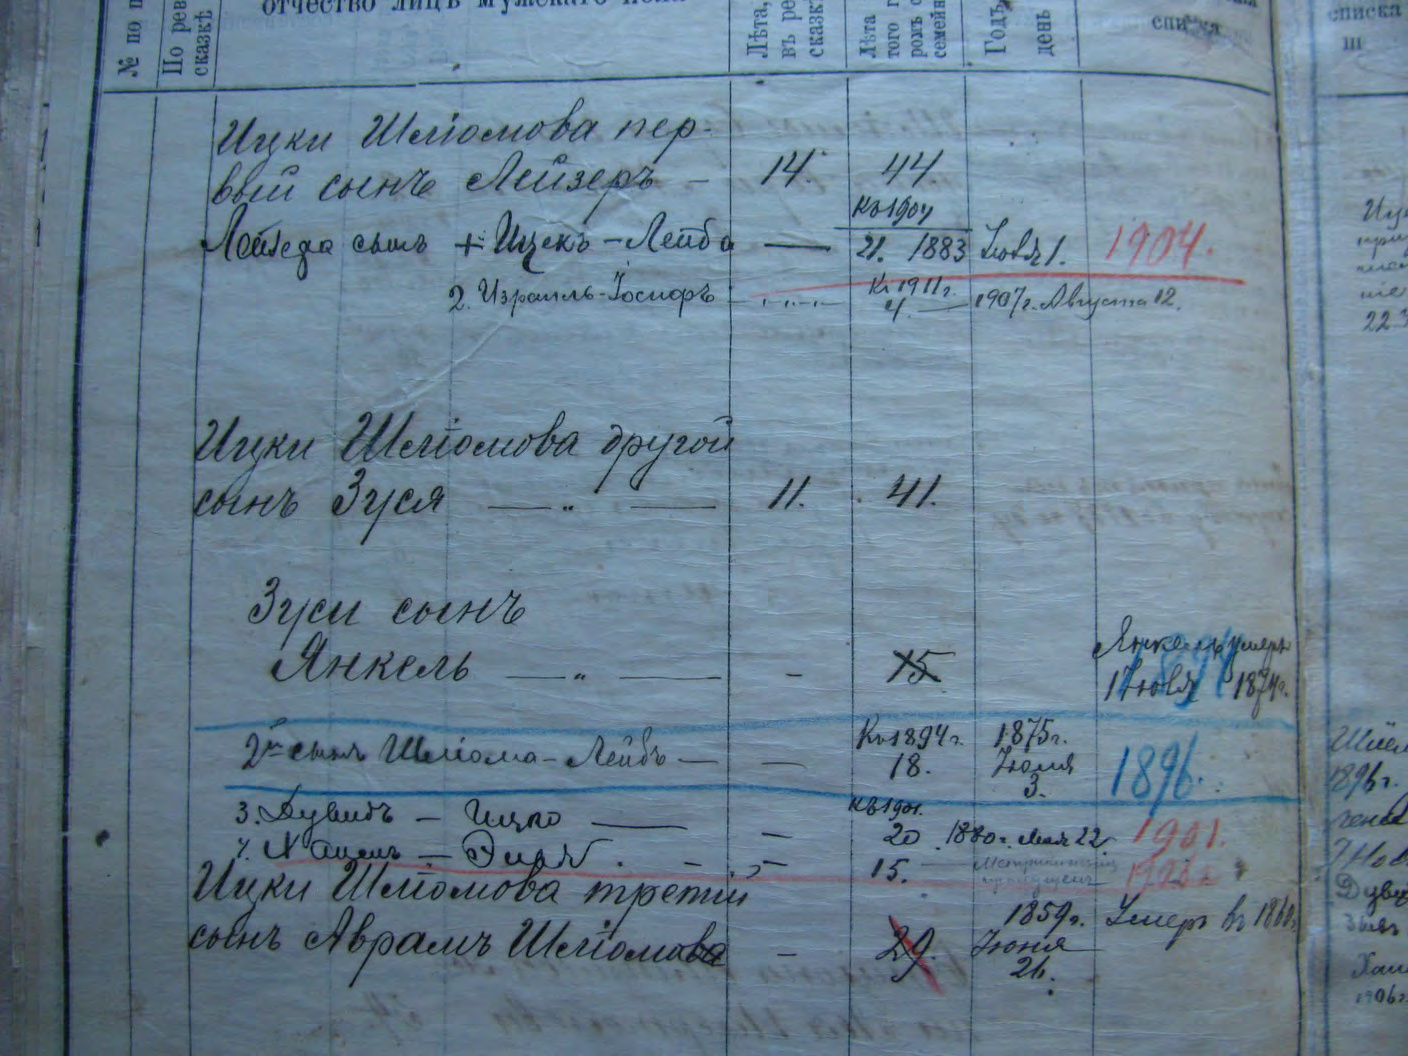 № по п
По рев
сказкѣ
отчество лицъ мужскаго пола
Лѣта,
въ ре
сказкѣ
Лѣта
того г
семейн
Годъ
день
списка
списка
Ицки Шліомова пер-
вый сынъ Лейзеръ – 14. 44
Къ 1904
Лейзера сынъ + Ицекъ-Лейба — 21. 1883 1. 1904.
2. Израиль-Іосифъ Къ 1911 г. 4. — 1907 г. Августа 12.
Ицки Шліомова другой
сынъ Зуся — „ — 11. 41.
Зуси сынъ
Янкель — „ — - 15 Янкель умеръ
1874 г.
2й сынъ Шліома-Лейбъ — — Къ 1894 г. 18. 1875 г. Іюня 3. 1896.
3. Дувидъ – Ицко — – Къ 1901. 20 1880 г. Мая 22 1901.
4. 15.
Ицки Шліомова третій
сынъ Аврамъ Шліомова - 29. 1859 г. Іюня 26. Умеръ въ
1896 г.
1906 г.